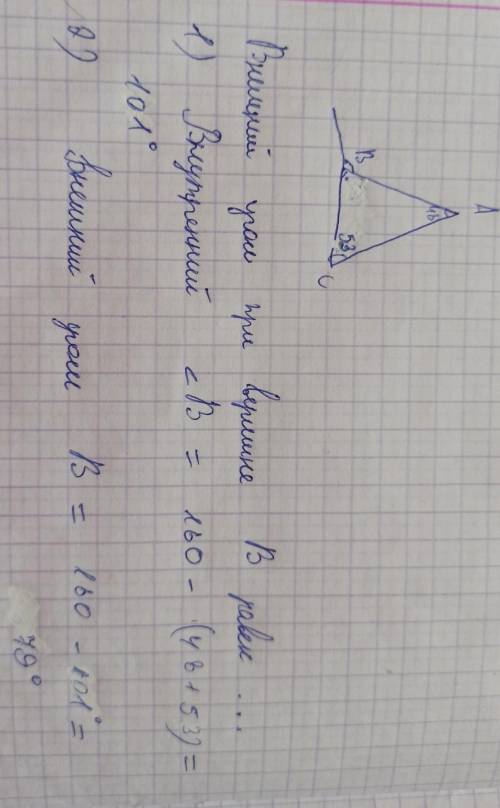 A
48
B
53
C
Внешний угол при вершине В равен ...
1) Внутренний <В = 180 - (48+53) =
101°
2) Внешний угол В = 180 - 101° =
79°